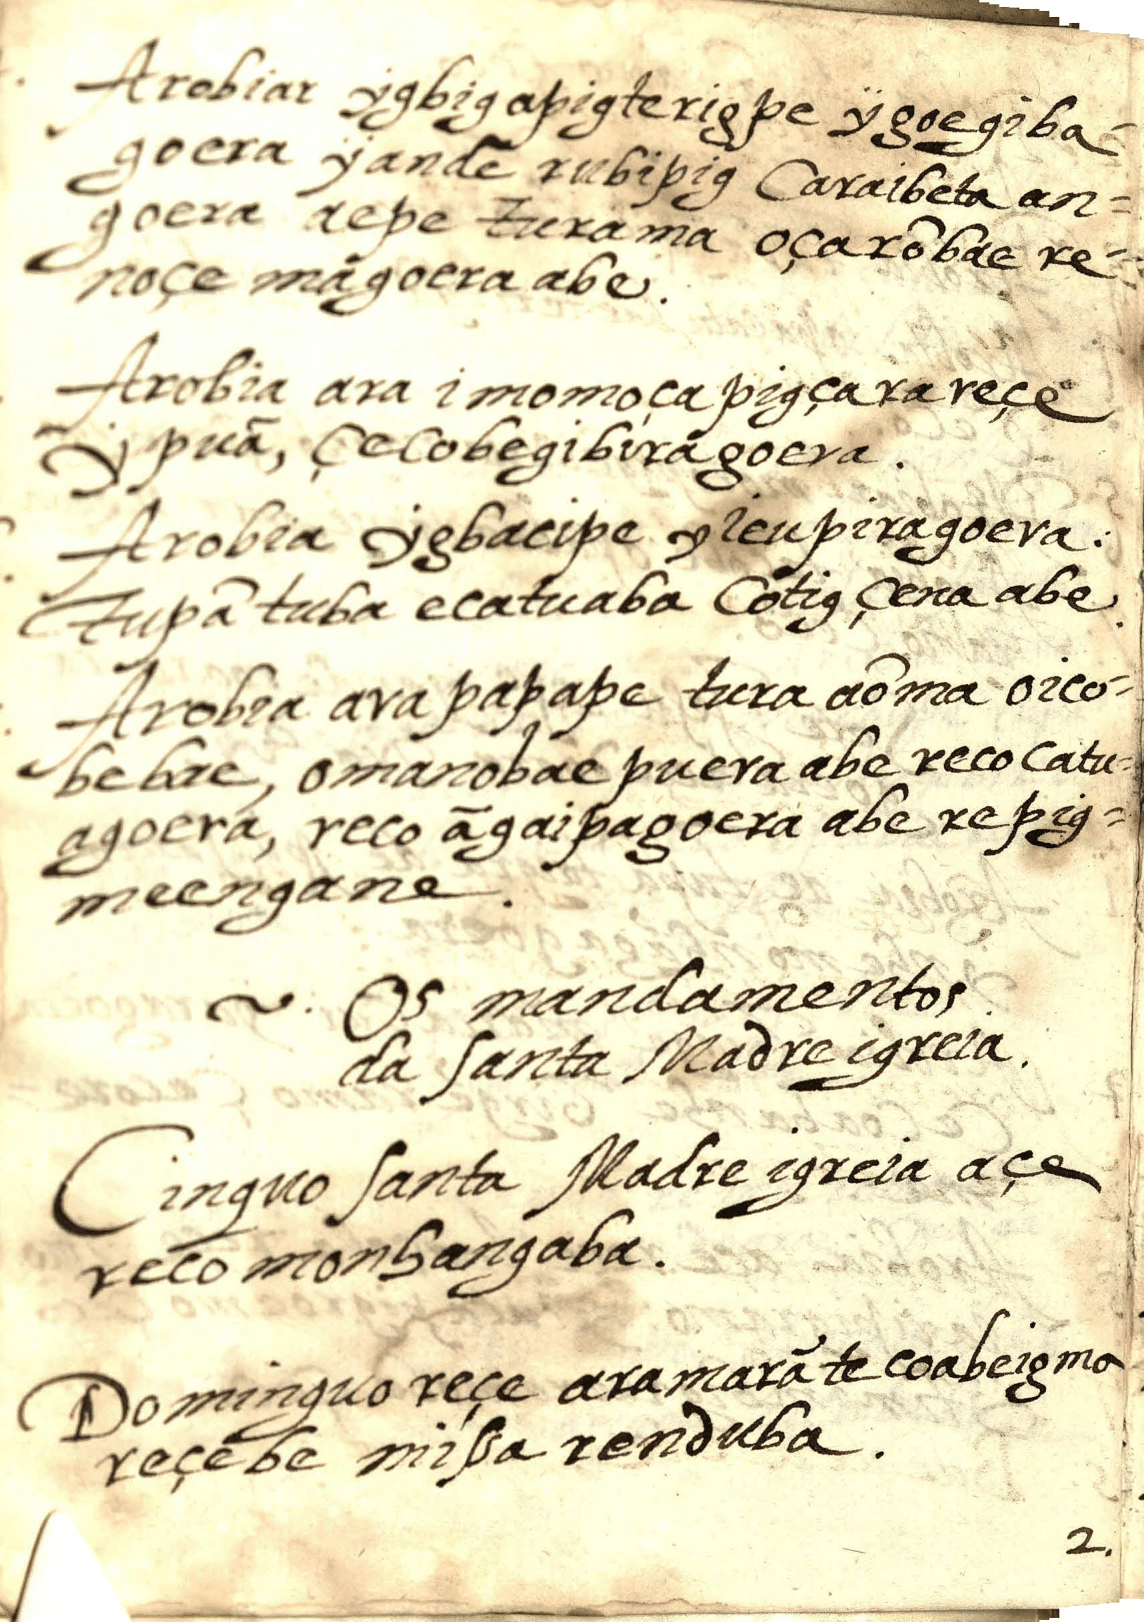 Arobiar ygbigapigterigpe ÿgoegiba=
goera ÿandẽ rubipig Caraibeta an=
goera aepe turama oçarõbae re=
noçe mãgoera abe.
Arobia ara imomoçapigçara reçe
ypuã, çecobegibirãgoera.
Arobia ÿgbacipe yieupiragoera:
Tupã tuba ecatuaba Cotig çena abe.
Arobia ara papape tura aõma oico=
bebae, omanobae puera abe reco catu=
agoera, reco ãgaipagoera abe repig=
meengane.
~. Os mandamentos
da santa Madre igreia.
Cinquo santa Madre igreia açe
reco monhangaba.
Dominguo reçe ara marãtecoabeigma
reçebe missa renduba.
2.